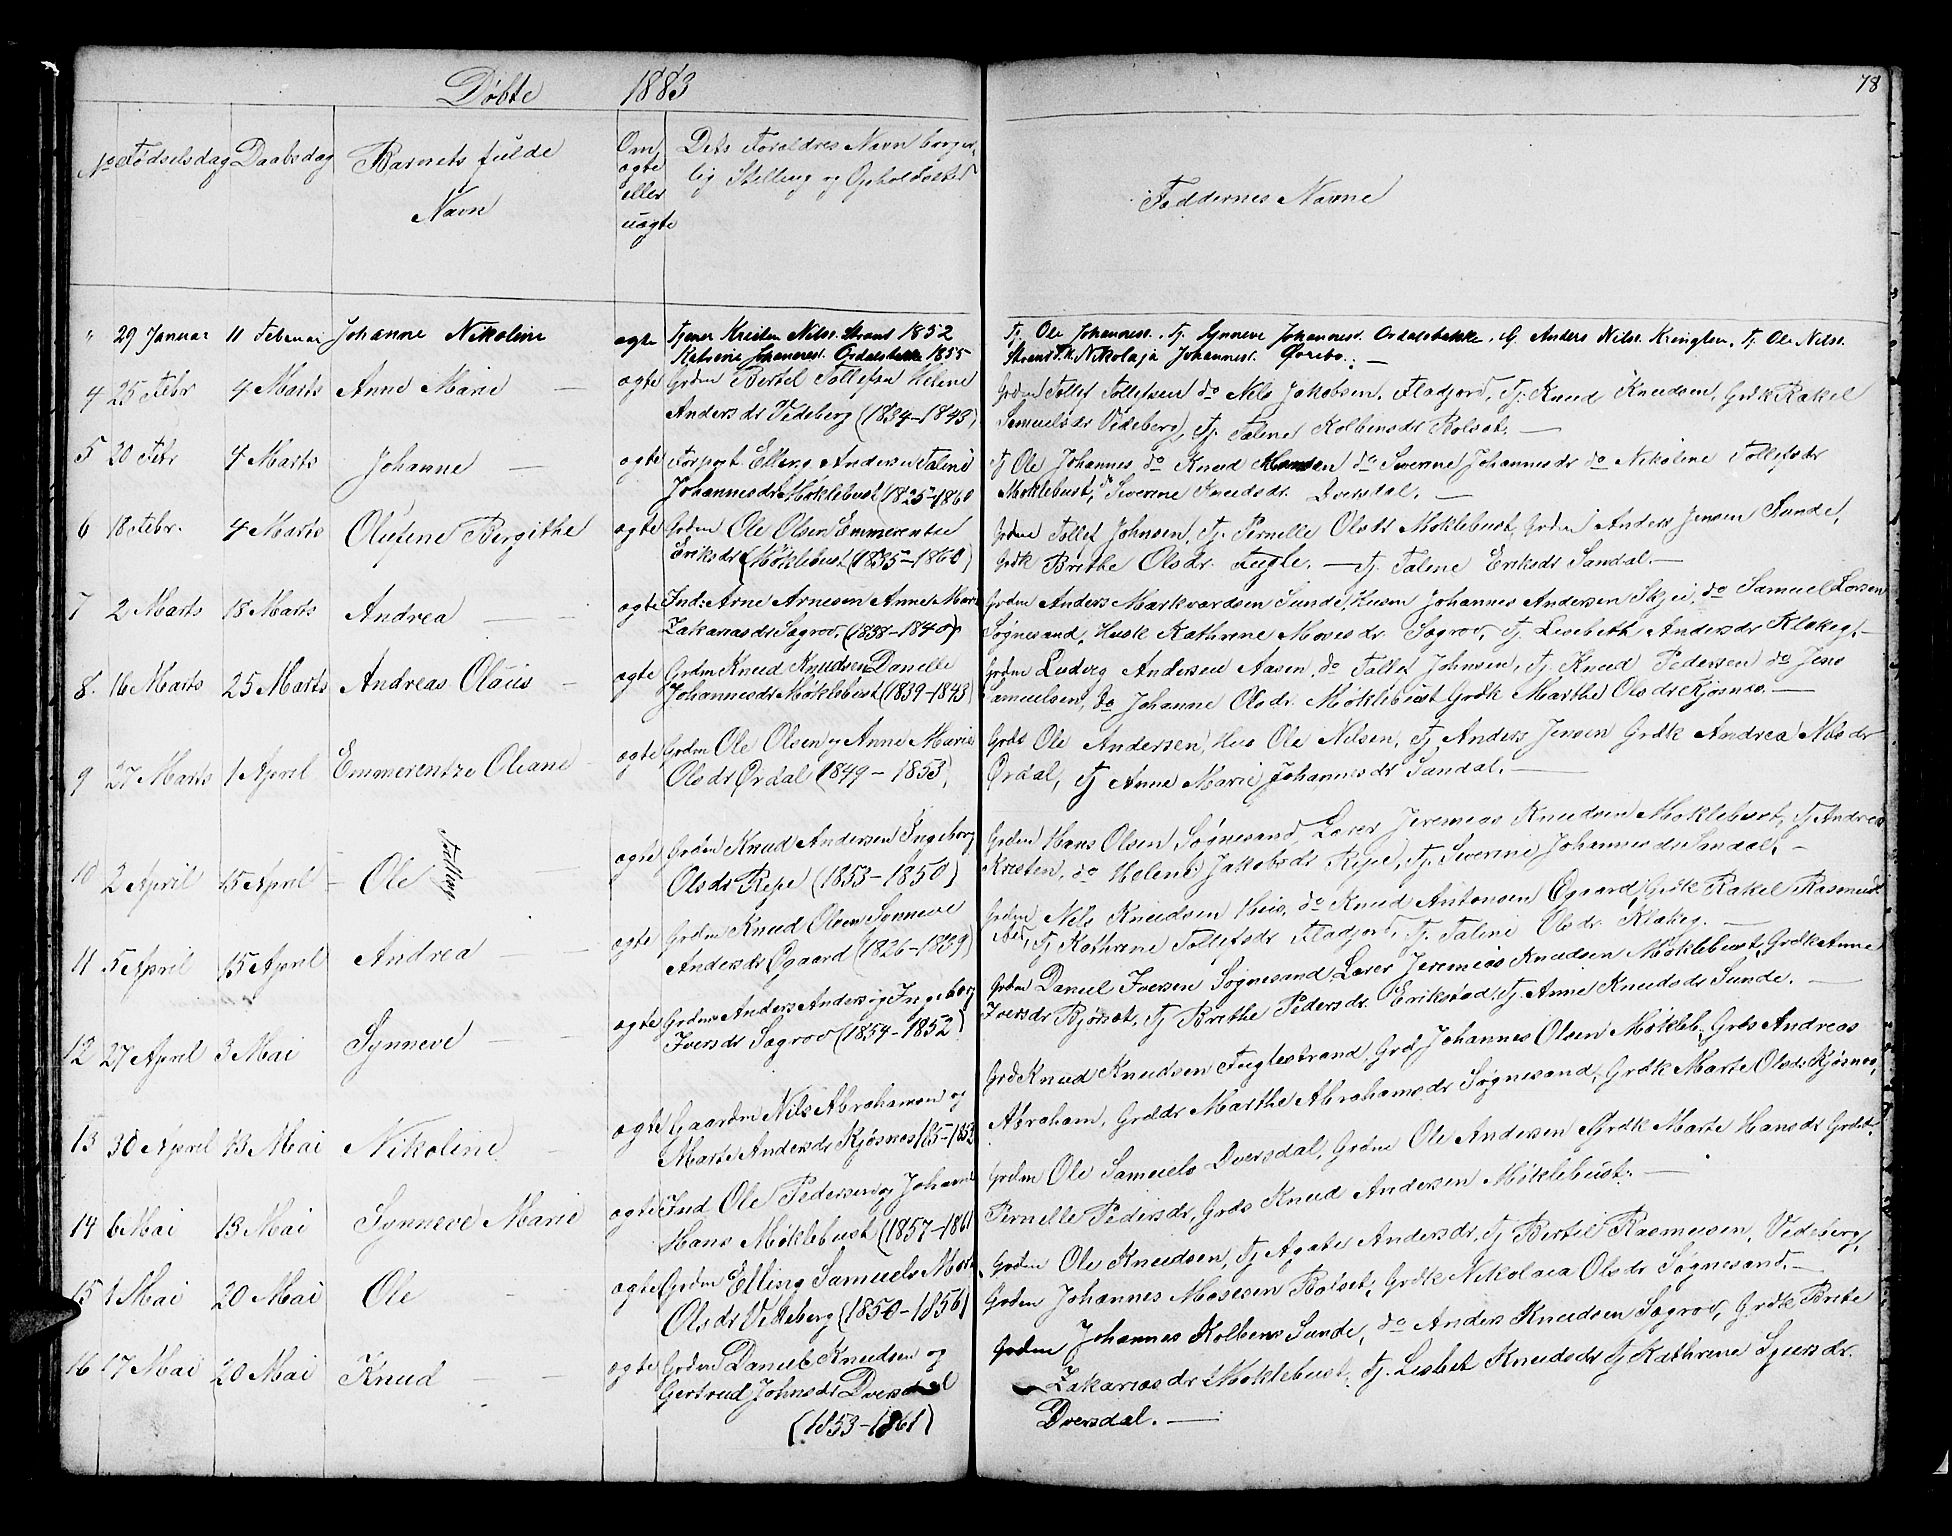 Døbte 1883
78
No Fødselsdag Daabsdag Barnets fulde Navn
Om ægte eller uægte
Dets Forældres Navn borger-
lig Stilling og Opholdssted
Faddernes Navne
" 29 Januar 11 Februar Johanne Nikoline ægte Tjener Kristen Nilss. Strand 1852
Katrine Johannesd. Ordalsbakke 1855
Tj. Ole Johanness. Tj. Synneve Johannesd. Ordalsbakke, G. Anders Nilss. Kringlen, Tj. Ole Nilss.
Strand Nikolaja Johannesd. Øvrebø.
4 25 Febr 4 Marts Anne Marie — ægte Grdm Bertel Tollefsn Helene
Andersdr Vedeberg (1834-1843)
Grdm Tollef Tollefsen do Nils Jakobsen, Fladjord, Tj. Knud Knudsen, Grdk Rakel
Samuelsdr Vedeberg, Tj. Taline Kolbensdr Bolsæt. —
5 20 Febr 4 Marts Johanne — ægte Forpagt Elling Andersen Taline
Johannesdr Møklebust (1825-1860
Tj Ole Johannes, do Knud Hansen do Severine Johannesdr do Nikoline Tollefsdr
Møklebust, do Severine Knudsdr. Dversdal. —
6 18 Febr. 4 Marts Olufene Bergithe ægte Grdm Ole Olsen Emmerentse
Eriksdr (Møklebust (1835-1860)
Grdm Tollef Johnsen, Tj. Pernelle Olsdr Møklebust, Grdm Anders Jensen Sunde,
Grdk Brithe Olsdr. Fugle. — Tj. Taline Eriksdr Sandal. —
7 2 Marts 18 Marts Andrea — ægte Ind: Arne Arnesen Anne Marie
Zakariasdr Søgrov, (1838-1840)
Grdm Anders Markvardsen Sunde, Husm Johannes Andersen Skjei, do Samuel Larsen
Søgnesand, Husk Kathrine Mosesdr Søgrov, Tj. Lisebeth Andersdr Klakeg. —
8. 16 Marts 25 Marts Andreas Olaus — ægte Grdm Knud Knudsen Danelle
Johannesdr Møklebust (1839-1843)
Grdm Ludvig Andersen Aasen, do Tollef Johnsen, Tj. Knud Pedersen do Jens
Samuelsen, do Johanne Olsdr. Møklebust Grdk Marthe Olsdr Kjøsnes. —
9 27 Marts 1 April Emmerentze Oliane ægte Grdm Ole Olsen og Anne Marie
Olsdr Ordal (1849 - 1853)
Grds Ole Andersen, Hus Ole Nilsen, Tj. Anders Jensen Grdk Andrea Nilsdr
Ordal, Tj Anne Marie Johannesdr Sandal. —
10 2 April 15 April — Ole Tvilling — ægte Grdm Knud Andersen Ingeborg
Olsdr Repe (1853 - 1850)
Grdm Hans Olsen Søgnesand, Lærer Jeremias Knudsen Møklebust, Tj. Andrea
Kristen, do Helene Jakobsdr Repe, Tj. Severine Johannesdr Sandal. —
11 5 April 15 April Andrea — ægte Grdm Knud Olsen Synneve
Andersdr Øgaard (1826-1839)
Grdm Nils Knudsen Hus, do Knud Antonsen Øgaard, Grdk Rakel Rasmusd
Tj Kathrine Tollefsdr Fladjord, Tj. Taline Olsdr. Klakeg. —
12 27 April 3 Mai Synneve — — ægte Grdm Anders Anders og Ingeborg
Iversdr Søgrov (1854-1852)
Grdm Daniel Iversen Søgnesand Lærer Jeremias Knudsen Møklebust, Grdk Anne
Iversdr Bjørsæt, Tj Brithe Pedersdr. Erikstad, Tj. Anne Knudsdr Sunde. —
13 30 April 13 Mai Nikoline — ægte Gaardm Nils Abrahamsen og
Marte Andersdr Kjøsnes
Grd Knud Knudsen Fuglestrand, Grd Johannes Olsen Møkleb. Grds Andreas
Abraham, Grddr Marthe Abrahamsdr Søgnesand, Grdk Marte Olsdr Kjøsnes,
14 6 Mai 13 Mai Synneve Marie ægte Ind Ole Pedersen og Johanne
Hans Møklebust (1857-1861
Grdm Ole Samuels Dversdal, Grdm Ole Andersen Grdk Marte Hansdr
Pernelle Pedersdr, Grds Knud Andersen Møklebust. —
15 1 Mai 20 Mai Ole — ægte Grdm Elling Samuels Marte
Olsdr Vedeberg (1850-1856)
Grdm Ole Knudsen, Tj Agate Andersdr, Tj Bertel Rasmusen, Vedeberg,
Grdm Johannes Mosesen Bolsæt, Grdk Nikolaia Olsdr Søgnesand. —
16 17 Mai 20 Mai Knud — — ægte Grdm Daniel Knudsen og
Gertrud Johnsdr Dversdal
(1853-1861)
Grdm Johannes Kolbens Sunde, do Anders Knudsen Søgrov, Grdk Brite
Zakariasdr Møklebust, Tj. Lisbet Knudsdr Tj Kathrine Sjursdr.
Dversdal. —